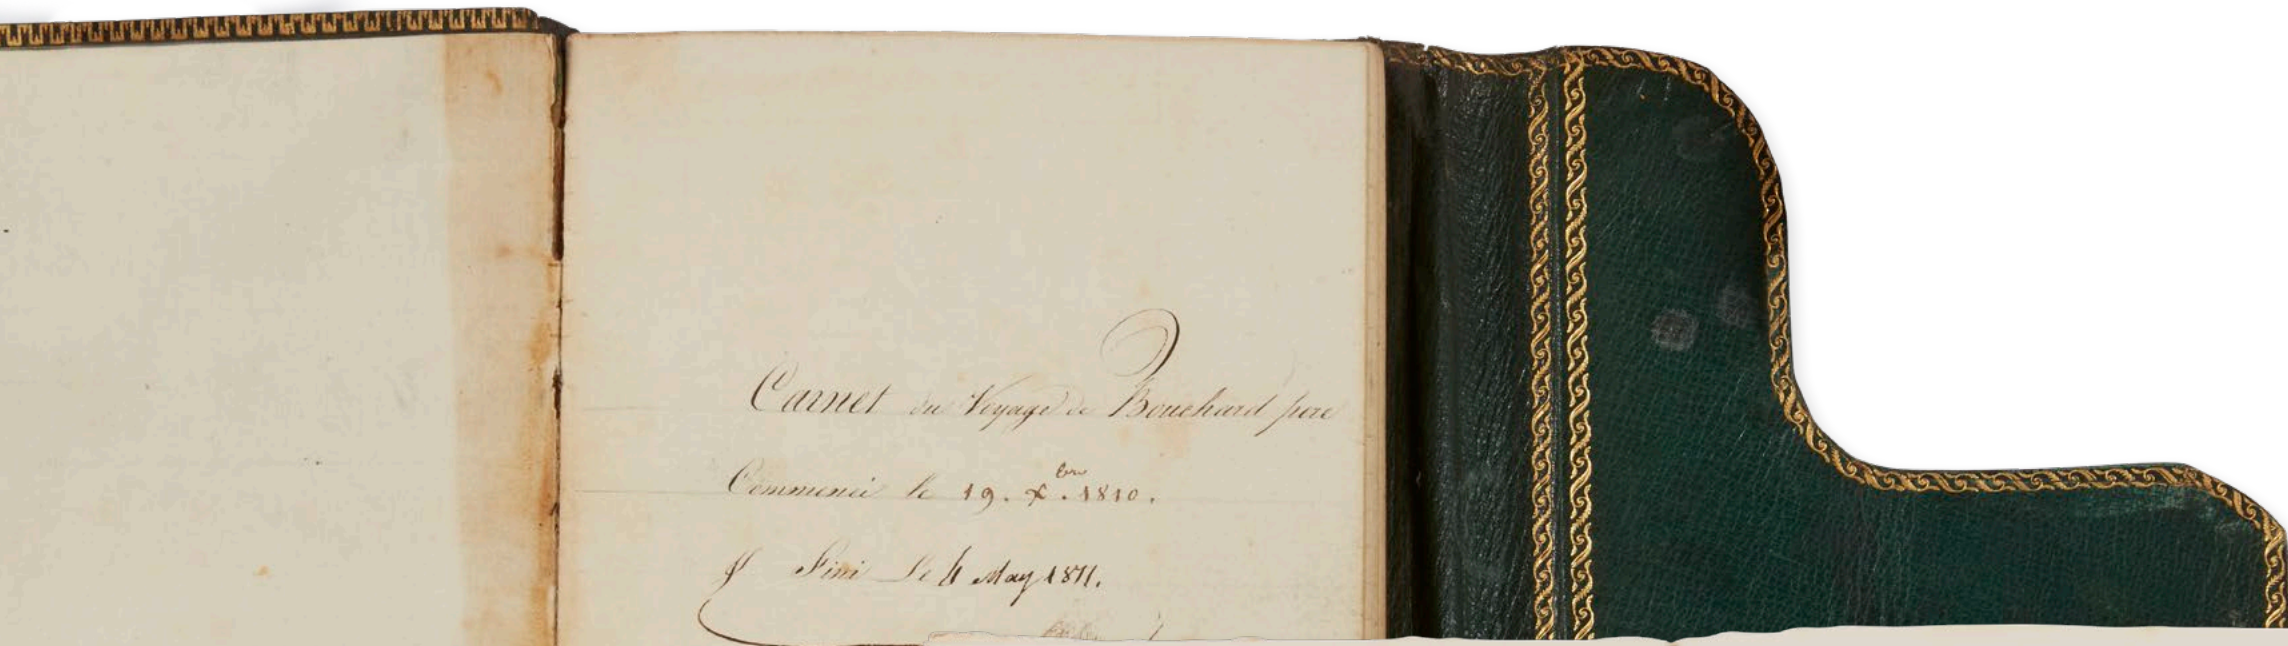 Carnet du Voyage de Bouchard pere
Commencé le 19. Xbre. 1810.
& Fini Le 4 May 1811.